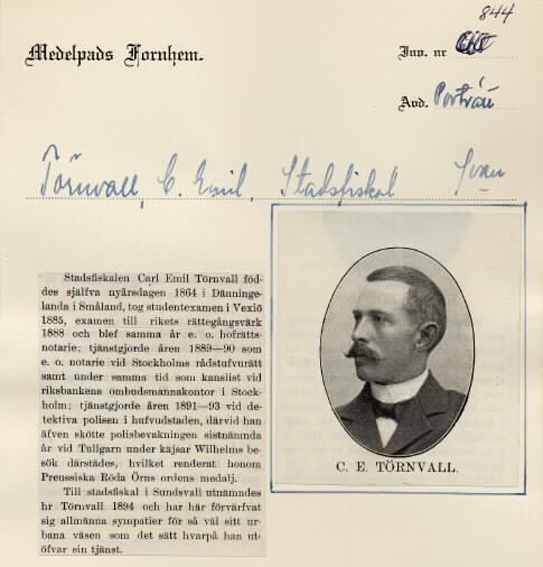 844
Medelpads Fornhem.
Inv. nr
Avd. Porträtt
Törnvall, C. Emil, Stadsfiskal
Stadsfiskalen Carl Emil Törnvall föd-
des själfva nyårsdagen 1864 i Dänninge-
landa i Småland, tog studentexamen i Vexiö
1885, examen till rikets rättegångsvärk
1888 och blef samma år e. o. hofrätts-
notarie; tjänstgjorde åren 1889—90 som
e. o. notarie vid Stockholms rådstufvurätt
samt under samma tid som kanslist vid
riksbankens ombudsmannakontor i Stock-
holm; tjänstgjorde åren 1891—93 vid de-
tektiva polisen i hufvudstaden, därvid han
äfven skötte polisbevakningen sistnämnda
år vid Tullgarn under kejsar Wilhelms be-
sök därstädes, hvilket renderat honom
Preussiska Röda Örns ordens medalj.
Till stadsfiskal i Sundsvall utnämndes
hr Törnvall 1894 och har här förvärfvat
sig allmänna sympatier för så väl sitt ur-
bana väsen som det sätt hvarpå han ut-
öfvar sin tjänst.
C. E. TÖRNVALL.